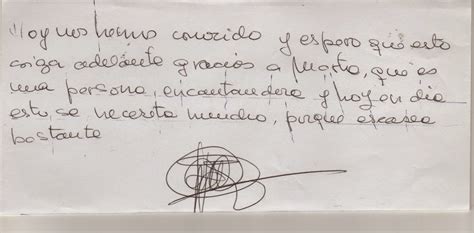 Hoy nos hemos conocido y espero que esto
sciga adelante gracias a Marta, que es
una persona encantandora y hoy en dia
esto, se necesita mucho, porque escasea
bastante